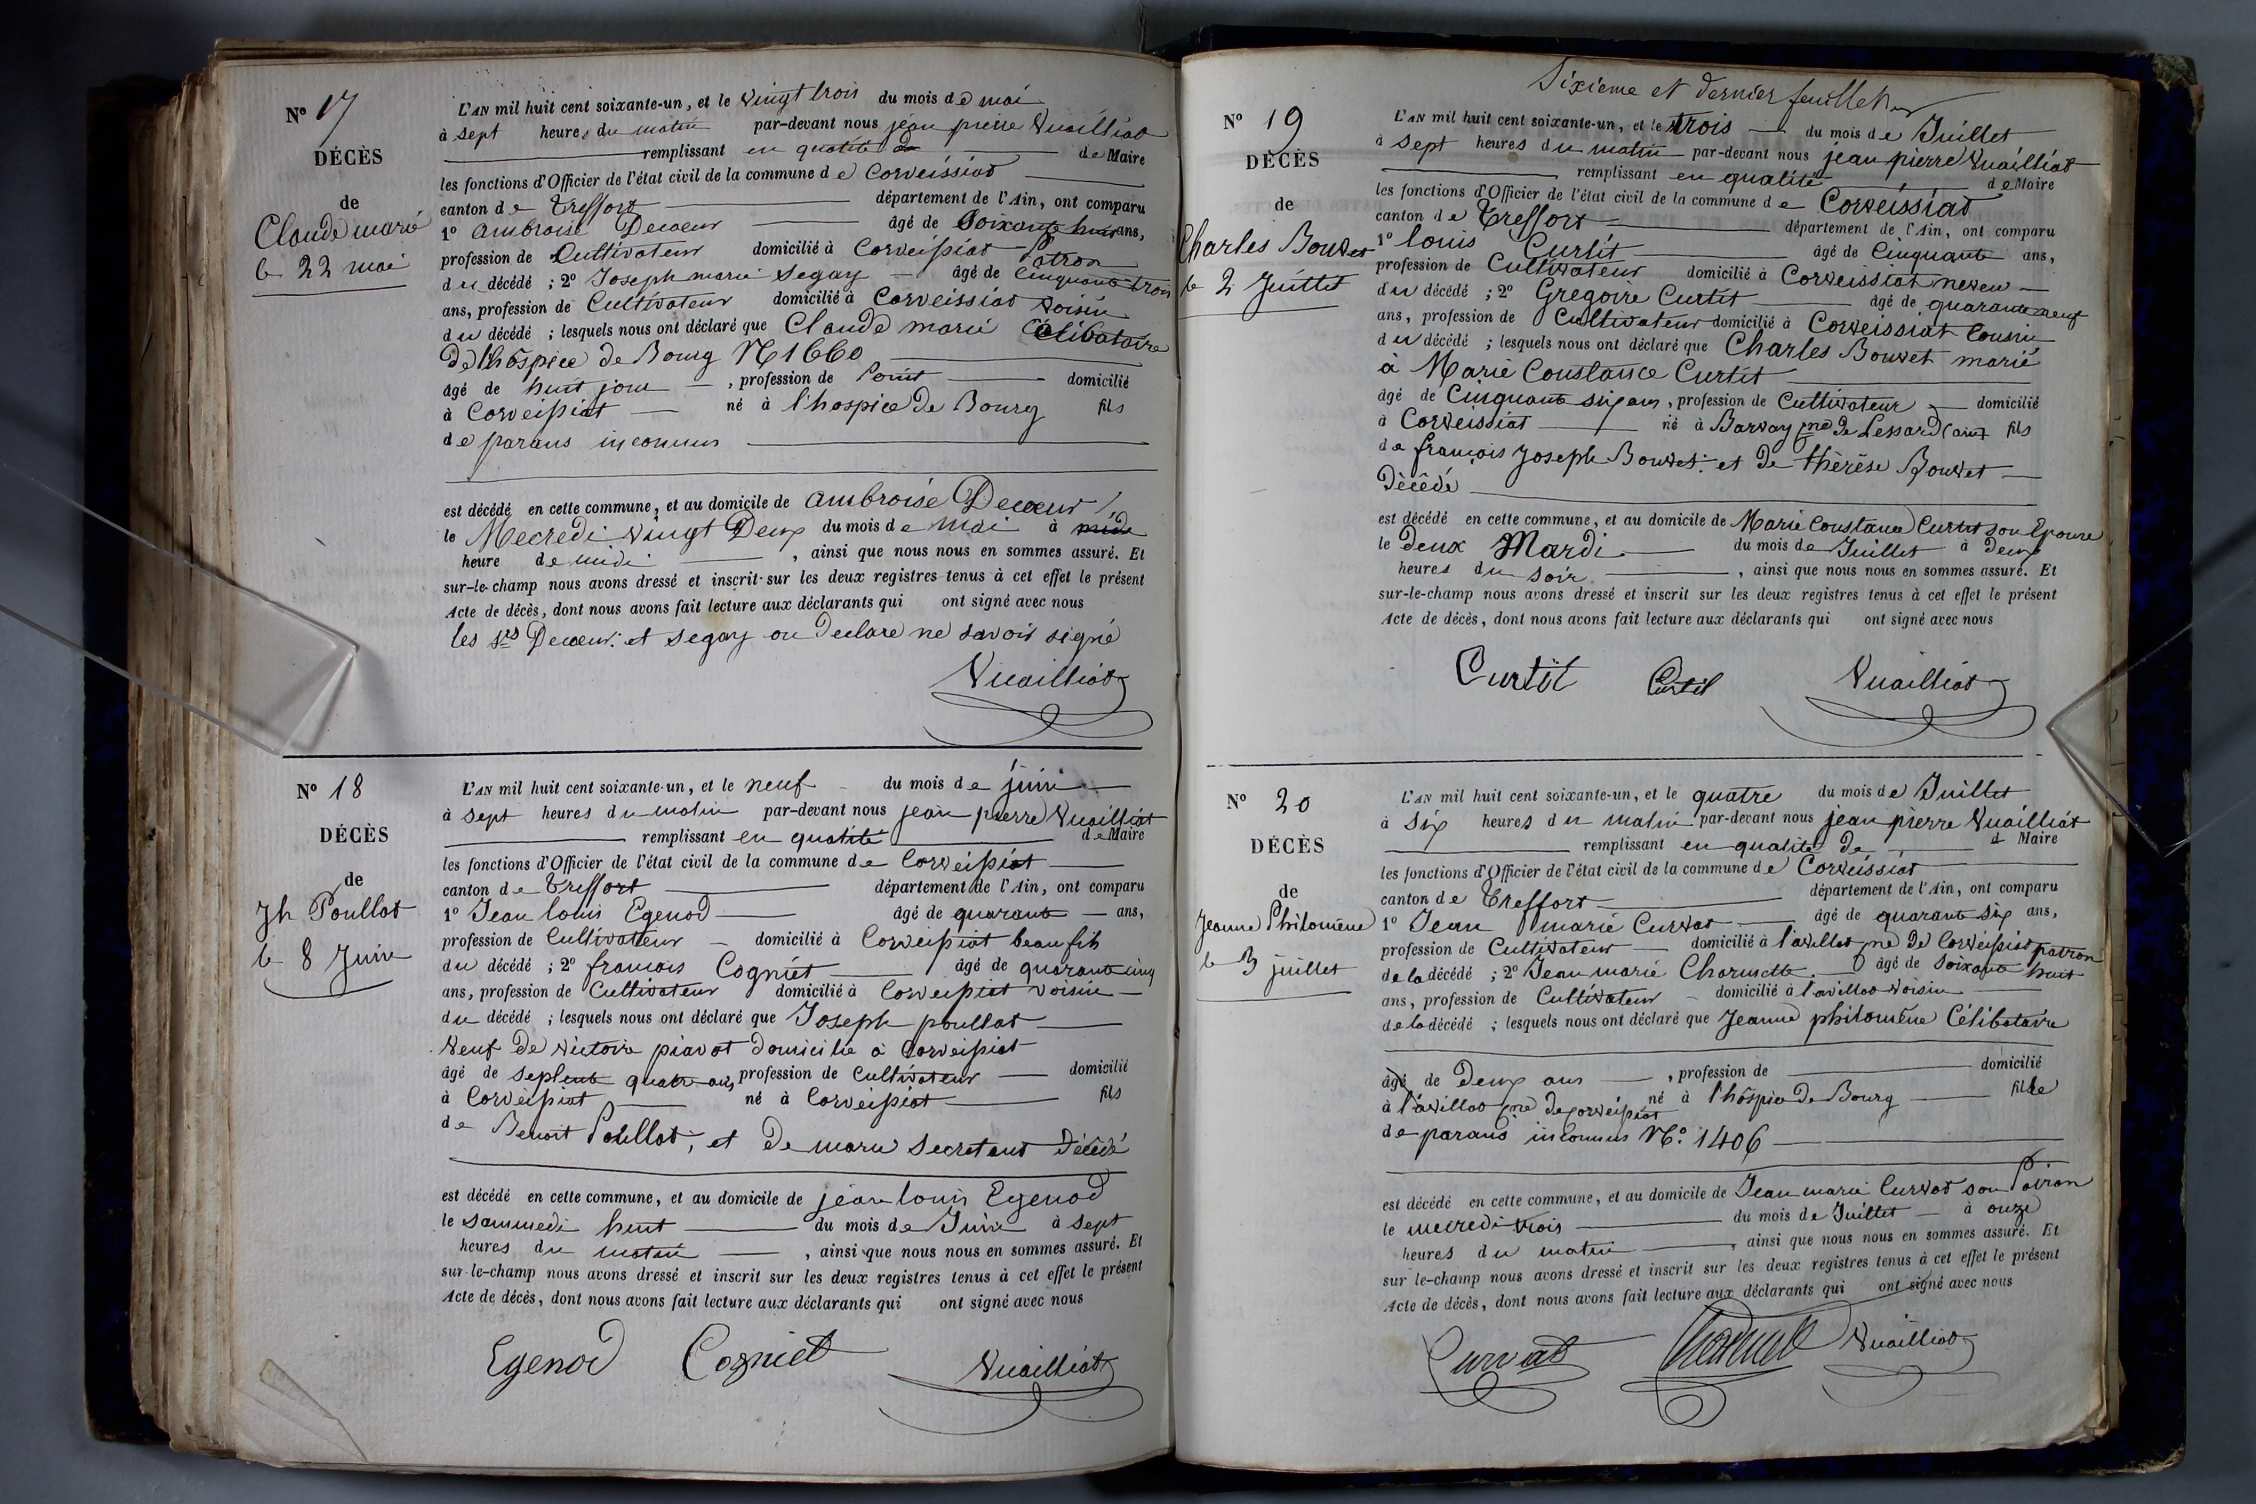 N° 17
DÉCÈS
de
Claude marie
le 22 mai
L'AN mil huit cent soixante-un, et le vingt trois du mois de mai
à sept heures du matin par-devant nous jean pierre Vuailliat
remplissant en qualité de Maire
les fonctions d'Officier de l'état civil de la commune de Corveissiat
canton de Treffort département de l'Ain, ont comparu
1° ambroise Decoeur âgé de Soixante huit ans,
profession de Cultivateur domicilié à Corveissiat Patron
du décédé ; 2° Joseph marie Segay âgé de Cinquante trois
ans, profession de Cultivateur domicilié à Corveissiat voisin
du décédé ; lesquels nous ont déclaré que Claude marie Célibataire
de l'hospice de Bourg N° 1660
âgé de huit jour , profession de Point domicilié
à Corveissiat né à l'hospice De Bourg fils
de parans inconnus
est décédé en cette commune, et au domicile de ambroise Decoeur
le Mecredi vingt Deux du mois de mai à
heure de midi , ainsi que nous nous en sommes assuré. Et
sur-le-champ nous avons dressé et inscrit sur les deux registres tenus à cet effet le présent
Acte de décès, dont nous avons fait lecture aux déclarants qui ont signé avec nous
les srs Decoeur et segay on Declare ne savoir signé
Vuailliat
N° 18
DÉCÈS
de
Jh Poullat
le 8 Juin
L'AN mil huit cent soixante-un, et le neuf du mois de juin
à sept heures du matin par-devant nous jean pierre Vuailliat
remplissant en qualité de Maire
les fonctions d'Officier de l'état civil de la commune de Corveissiat
canton de Treffort département de l'Ain, ont comparu
1° Jean louis Egenod âgé de quarante ans,
profession de Cultivateur domicilié à Corveissiat beau fils
du décédé ; 2° francois Cogniet âgé de quarante cinq
ans, profession de Cultivateur domicilié à Corveissiat voisin
du décédé ; lesquels nous ont déclaré que Joseph poullat
Veuf De victoire piavot domicilié à Corveissiat
âgé de septente quatre ans profession de Cultivateur domicilié
à Corveissiat né à Corveissiat fils
de Benoit Poullat, et De marie Secretant Décédé
est décédé en cette commune, et au domicile de jean louis Egenod
le sammedi huit du mois de Juin à sept
heures du matin , ainsi que nous nous en sommes assuré. Et
sur-le-champ nous avons dressé et inscrit sur les deux registres tenus à cet effet le présent
Acte de décès, dont nous avons fait lecture aux déclarants qui ont signé avec nous
Egenod Cogniet Vuailliat
Sixieme et dernier feuillet
N° 19
DÉCÈS
de
Charles Bouvet
le 2 Juillet
L'AN mil huit cent soixante-un, et le trois du mois de Juillet
à sept heures du matin par-devant nous jean pierre Vuailliat
remplissant en qualité de Maire
les fonctions d'Officier de l'état civil de la commune de Corveissiat
canton de Treffort département de l'Ain, ont comparu
1° louis Curtit âgé de Cinquante ans,
profession de Cultivateur domicilié à Corveissiat neveu
du décédé ; 2° Gregoire Curtit âgé de quarante neuf
ans, profession de Cultivateur domicilié à Corveissiat Cousin
du décédé ; lesquels nous ont déclaré que Charles Bouvet marié
à Marie Constance Curtit
âgé de Cinquante six ans, profession de Cultivateur domicilié
à Corveissiat né à Barvay cne De Lessard (ain) fils
de françois Joseph Bouvet et De thérèse Bouvet
Décédé
est décédé en cette commune, et au domicile de Marie Constance Curtit son Epouse
le deux Mardi du mois de Juillet à Deux
heures du soir , ainsi que nous nous en sommes assuré. Et
sur-le-champ nous avons dressé et inscrit sur les deux registres tenus à cet effet le présent
Acte de décès, dont nous avons fait lecture aux déclarants qui ont signé avec nous
Curtit Curtil Vuailliat
N° 20
DÉCÈS
de
Jeanne Philomène
le 3 juillet
L'AN mil huit cent soixante-un, et le quatre du mois de Juillet
à six heures du matin par-devant nous jean pierre Vuailliat
remplissant en qualité de d Maire
les fonctions d'Officier de l'état civil de la commune de Corveissiat
canton de Treffort département de l'Ain, ont comparu
1° Jean marie Curvat âgé de quarante six ans,
profession de Cultivateur domicilié à l'avillat cne De Corveissiat patron
de la décédé ; 2° Jean marie Charnette âgé de Soixante huit
ans, profession de Cultivateur domicilié à l'avillat voisin
de la décédé ; lesquels nous ont déclaré que Jeanne philomène Célibataire
âgé de Deux ans , profession de domicilié
à l'avillat cne de corveissiat né à l'hospice De Bourg fille
de parans inconnus N° 1406
est décédé en cette commune, et au domicile de Jean marie Curvat son Patron
le mecredi trois du mois de Juillet à onze
heures du matin , ainsi que nous nous en sommes assuré. Et
sur-le-champ nous avons dressé et inscrit sur les deux registres tenus à cet effet le présent
Acte de décès, dont nous avons fait lecture aux déclarants qui ont signé avec nous
Curvat Vuailliat